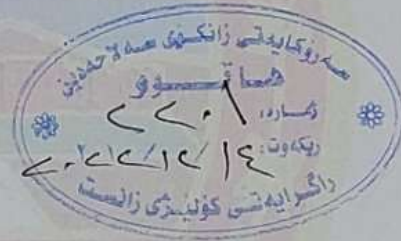 سەرۆکایەتی زانکۆی سەلاحەدین
هاتوو
ژمارە: ٢٢٠٨
ڕێکەوت: ٢٠٢٢/١٢/١٤
ڕاگرایەتی کۆلێژی زانست